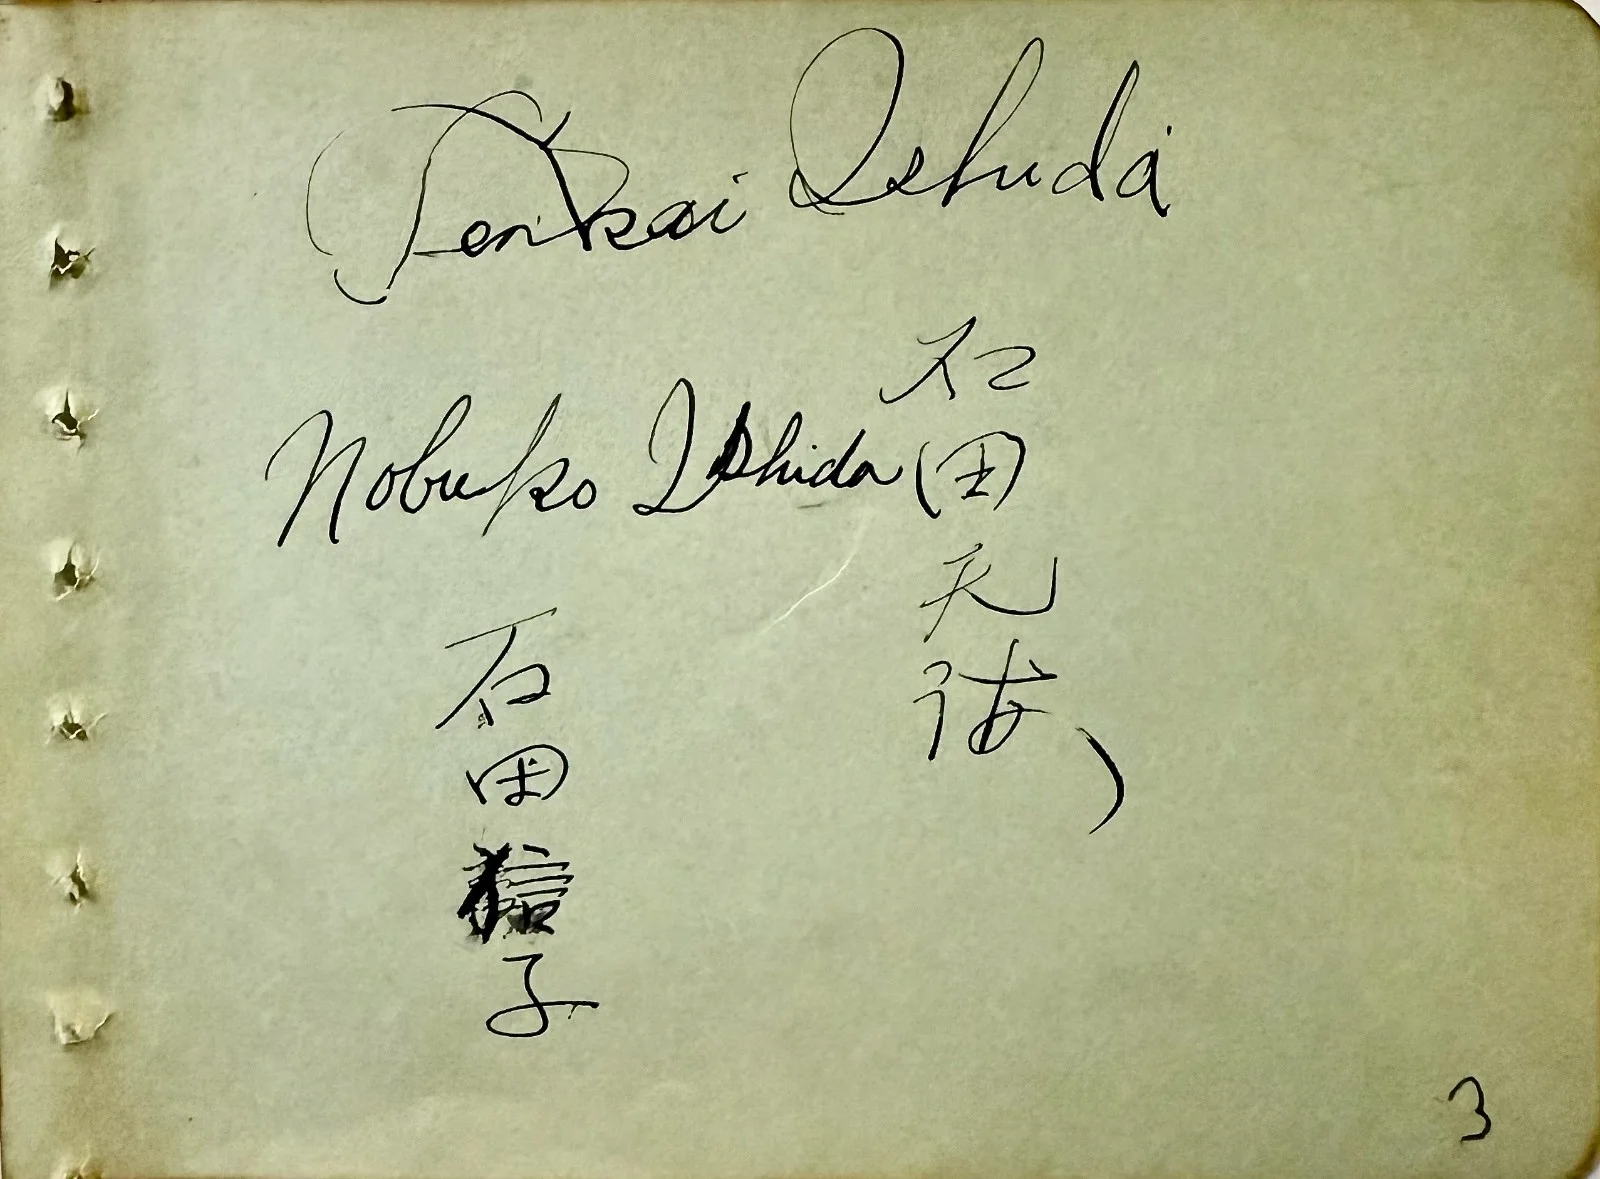 Tenkai Ishida
Nobuko Ishida
石田天海
石田信子
3